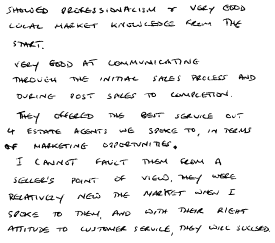 SHOWED PROFESSIONALISM & VERY GOOD
LOCAL MARKET KNOWLEDGE FROM THE
START.
VERY GOOD AT COMMUNICATING
THROUGH THE INITIAL SALES PROCESS AND
DURING POST SALES TO COMPLETION.
THEY OFFERED THE BEST SERVICE OUT
4 ESTATE AGENTS WE SPOKE TO, IN TERMS
OF MARKETING OPPORTUNITIES.
I CANNOT FAULT THEM FROM A
SELLER'S POINT OF VIEW, THEY WERE
RELATIVELY NEW THE MARKET WHEN I
SPOKE TO THEM, AND WITH THEIR RIGHT
ATTITUDE TO CUSTOMER SERVICE, THEY WILL SUCCEED.